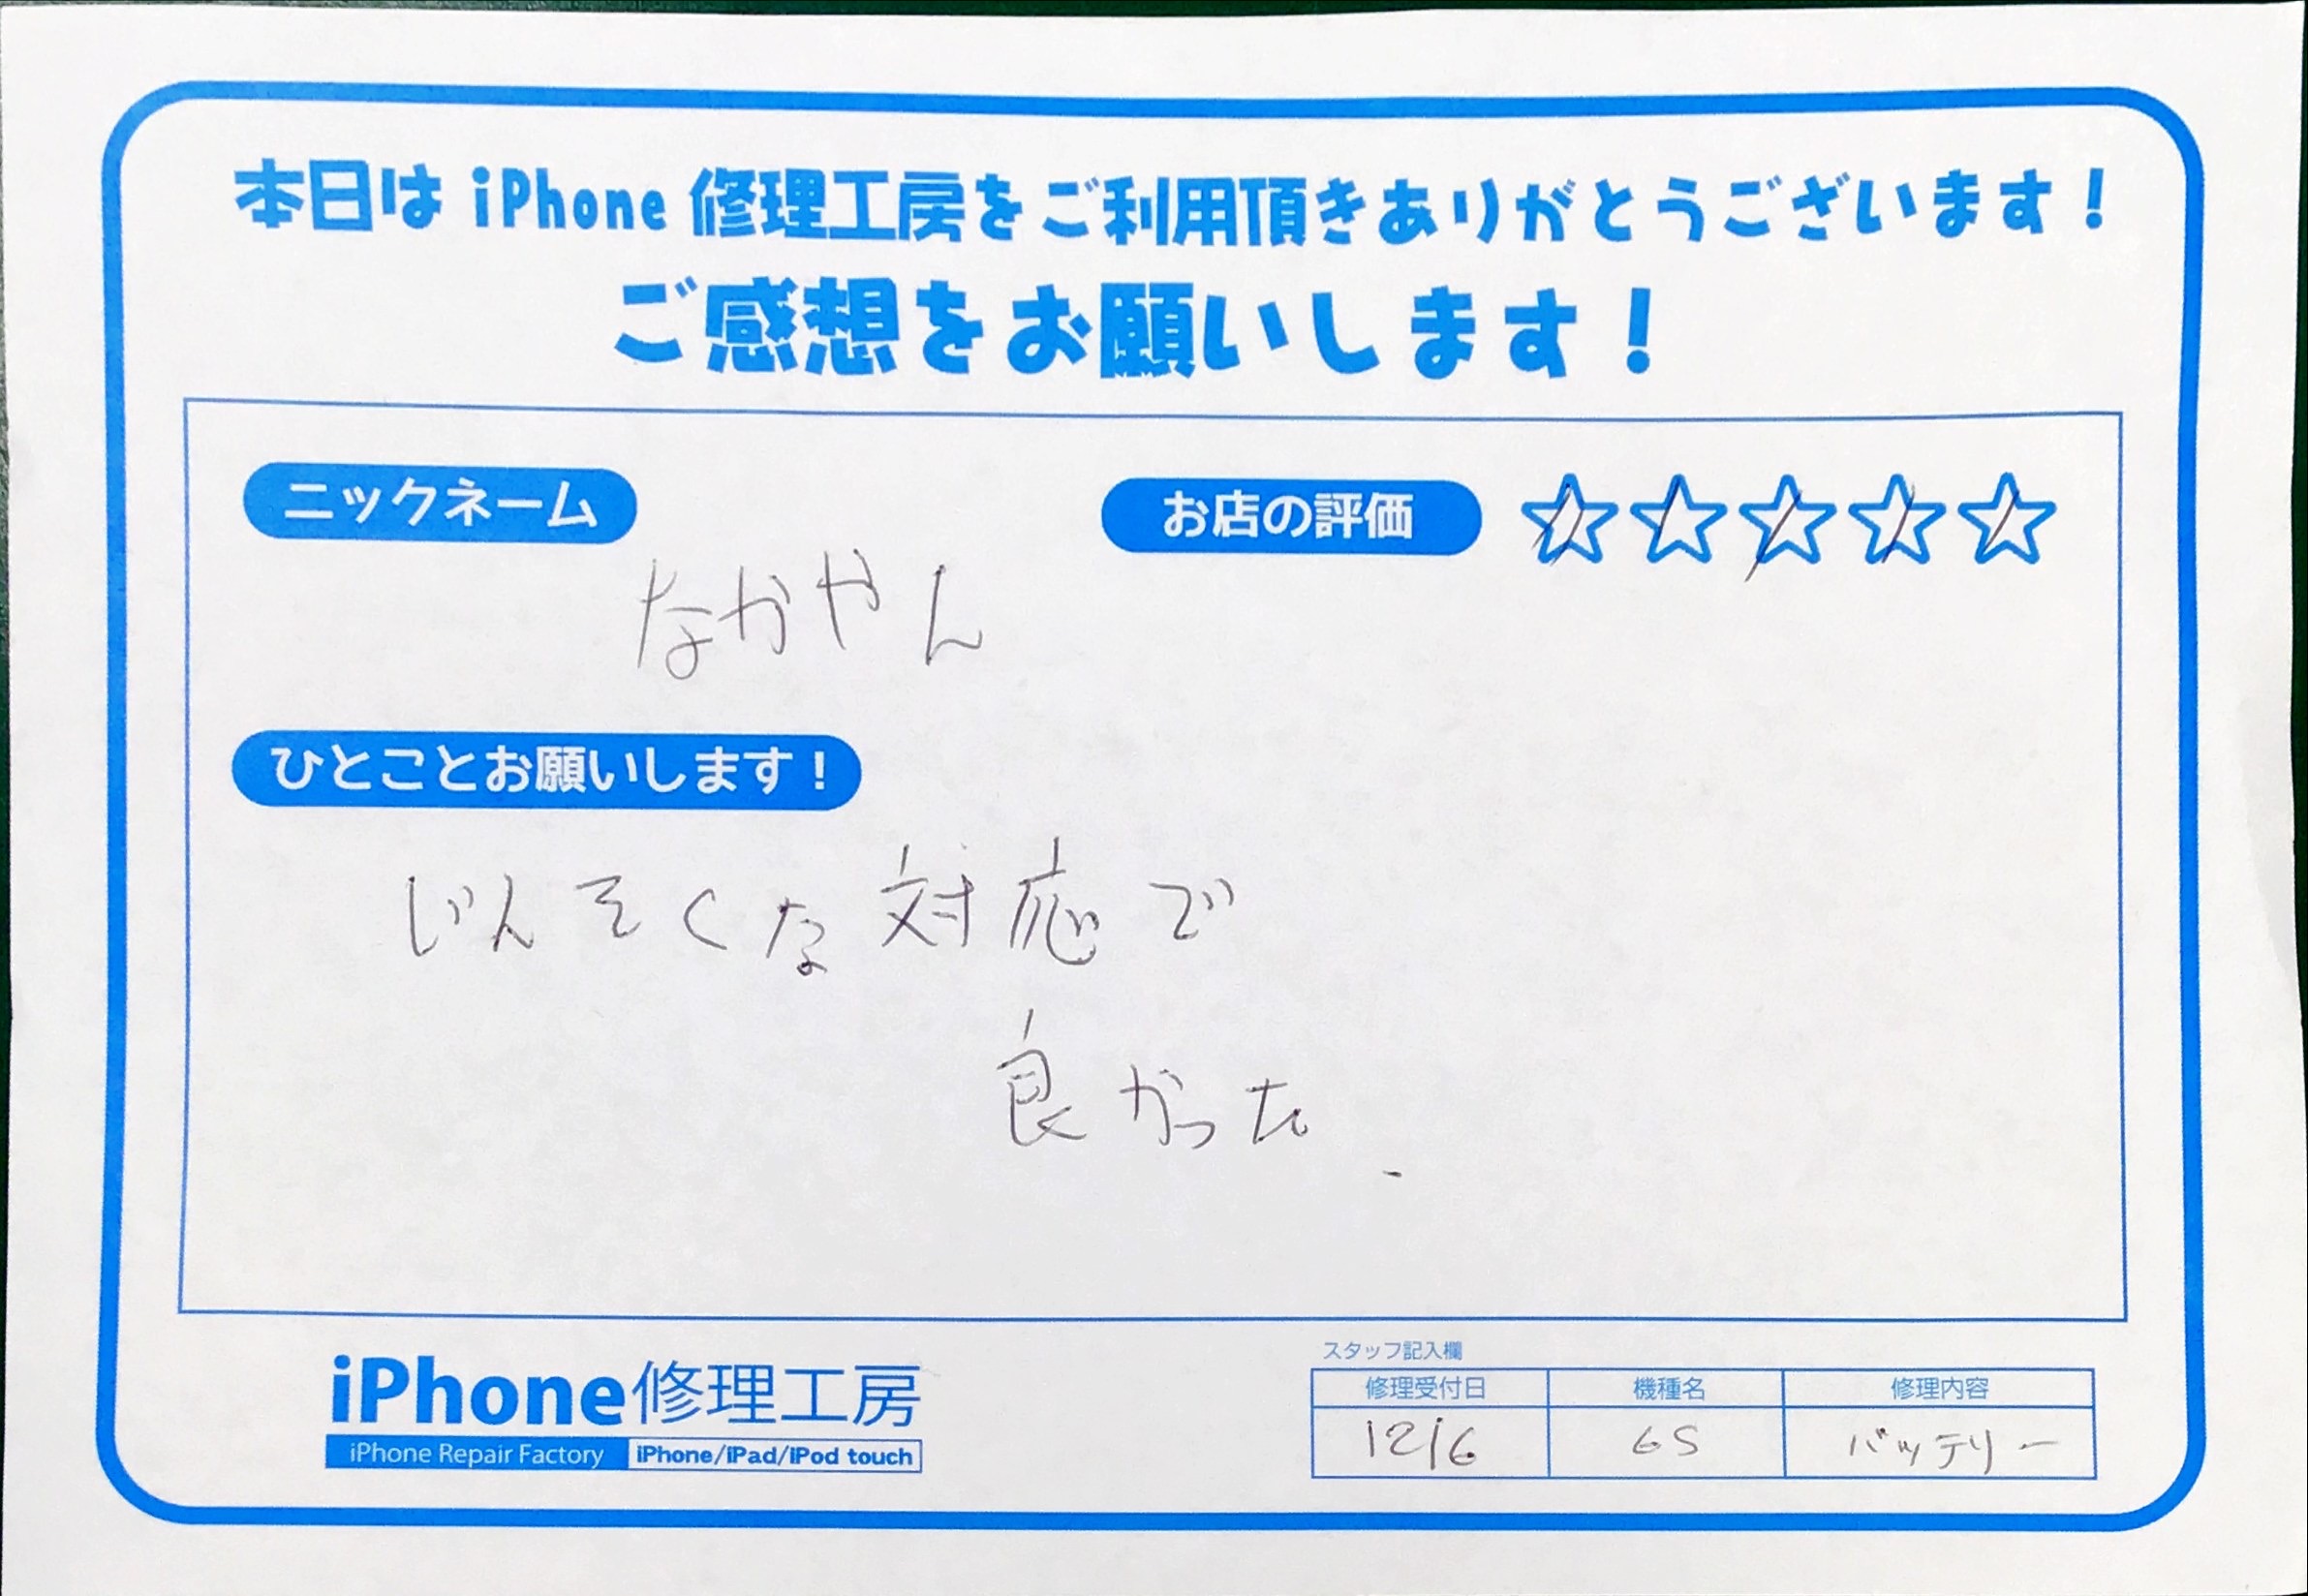 本日は iPhone 修理工房をご利用頂きありがとうございます！
ご感想をお願いします！
ニックネーム
お店の評価 ☆☆☆☆☆
なかやん
ひとことお願いします！
じんそくな対応で
良かった
iPhone修理工房
iPhone Repair Factory iPhone/iPad/iPod touch
スタッフ記入欄
修理受付日 機種名 修理内容
12/6 6S バッテリー